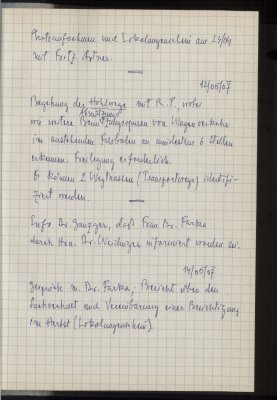 Photoaufnahmen und Lokalaugenschein am 25/04
mit Fritz Astner.
12/05/07
Begehung des Hohlwegs mit R. P., wobei
Abnützungs
wir weitere spuren von Wagenverkehr
im anstehenden Felsboden an mindestens 6 Stellen
erkennen. Freilegung erforderlich.
Es können 2 Wegtrassen (Transportwege) identifi-
ziert werden.
Info Dr. daß Frau Dr. Farka
durch Hrn. Dr. Weidinger informiert worden sei.
/05/07
Gespräch m. Dr. Farka; Bericht über den
Sachverhalt und Vereinbarung einer Besichtigung
im Herbst (Lokalaugenschein).